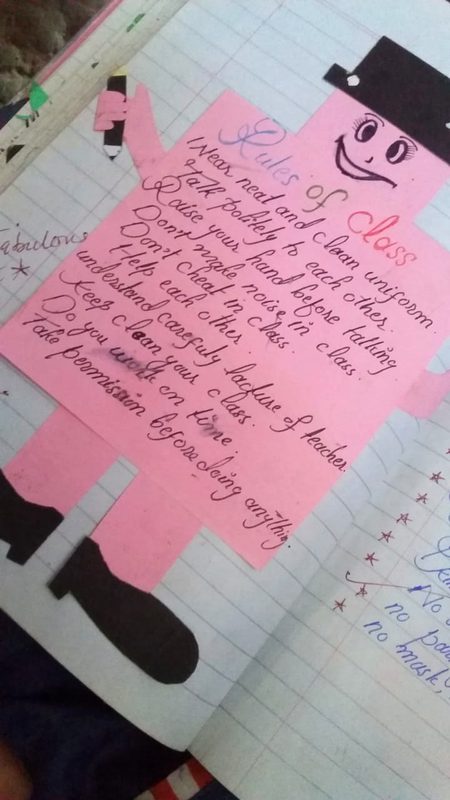 fabulous
Rules of class
Wear neat and clean uniform.
Talk politely to each other.
Raise your hand before talking
Don't made noise in class.
Don't cheat in class.
Help each other.
understand carefuly lacture of teacher.
Keep clean your class.
Do you work on time.
Take permission before doing anything.
No
no
no mask,